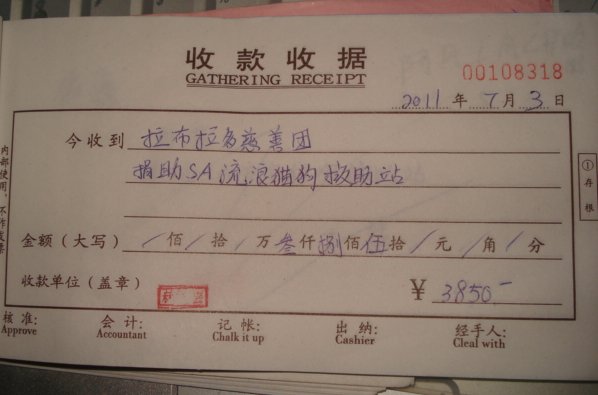 收款收据
GATHERING RECEIPT
00108318
2011年7月3日
今收到 拉布拉多慈善团
捐助SA流浪猫狗救助站
金额(大写) / 佰 / 拾 / 万 叁仟捌佰伍拾 / 元 / 角 / 分
收款单位(盖章) ¥ 3850-
核准: 会计: 记帐: 出纳: 经手人:
Approve Accountant Chalk it up Cashier Cleal with
①存根
内部使用,不作发票